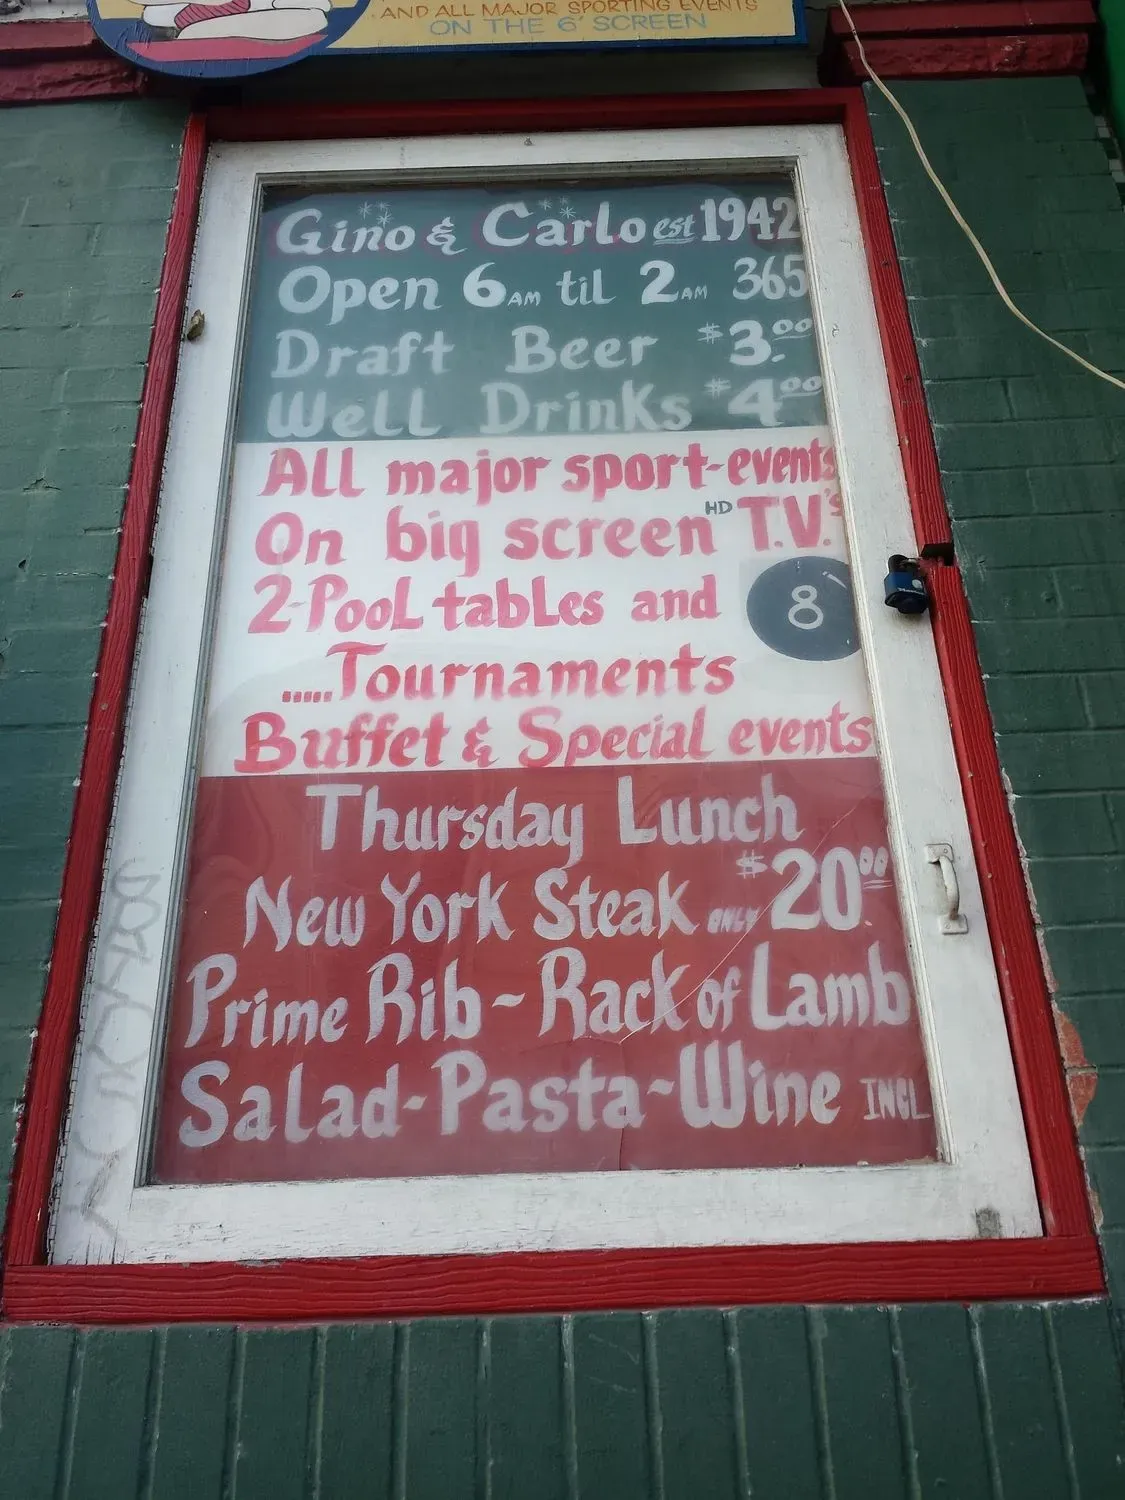 AND ALL MAJOR SPORTING EVENTS
ON THE 6' SCREEN
Gino & Carlo est 1942
Open 6 AM til 2 AM 365
Draft Beer $3.00
Well Drinks $4.00
All major sport-events
On big screen HD T.V.'s
2-Pool tables and 8
.....Tournaments
Buffet & Special events
Thursday Lunch
New York Steak ONLY $20.00
Prime Rib ~ Rack of Lamb
Salad-Pasta~Wine INCL